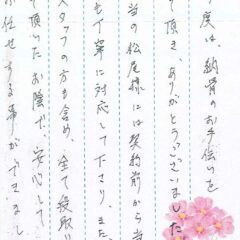 度は、納骨のお手伝いを
て頂き、ありがとうございました
当の松尾様には契約前から
も丁寧に対応して下さり、また、
スタッフの方も含め、全て段取り
て頂いたお陰で、安心して
お任せする事ができまし